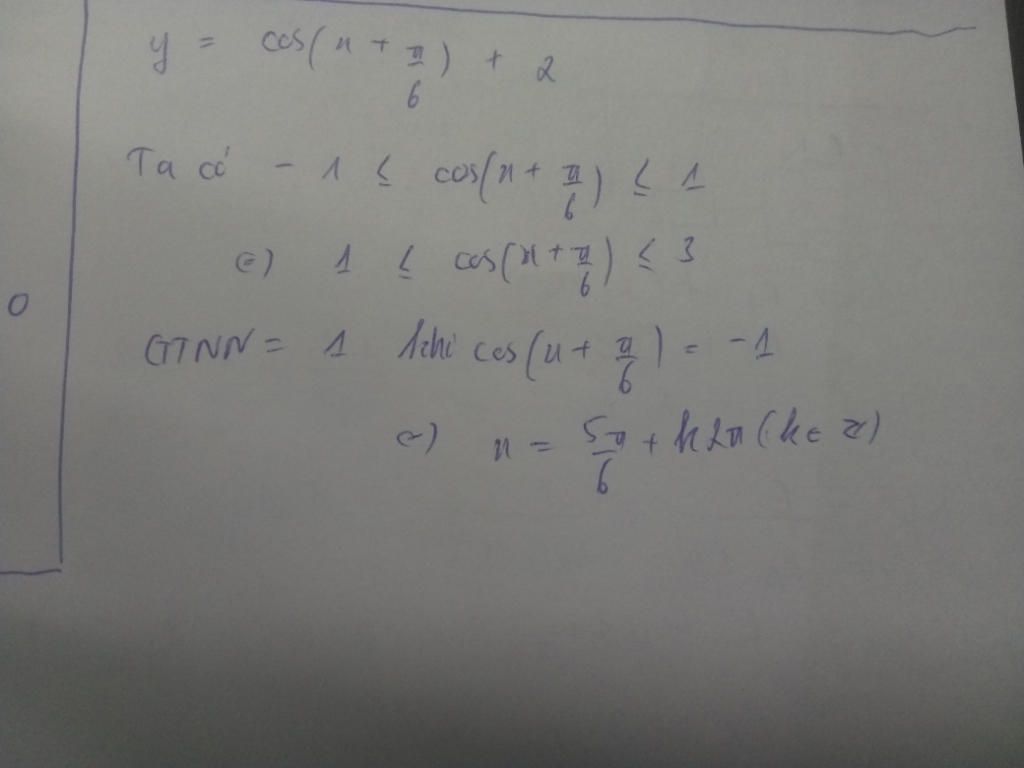 y = cos(x + π/6) + 2
Ta có - 1 ≤ cos(x + π/6) ≤ 1
(=) 1 ≤ cos(x + π/6) ≤ 3
0
GTNN = 1 khi cos(x + π/6) = -1
(=) x = 5π/6 + k2π (k ∈ Z)